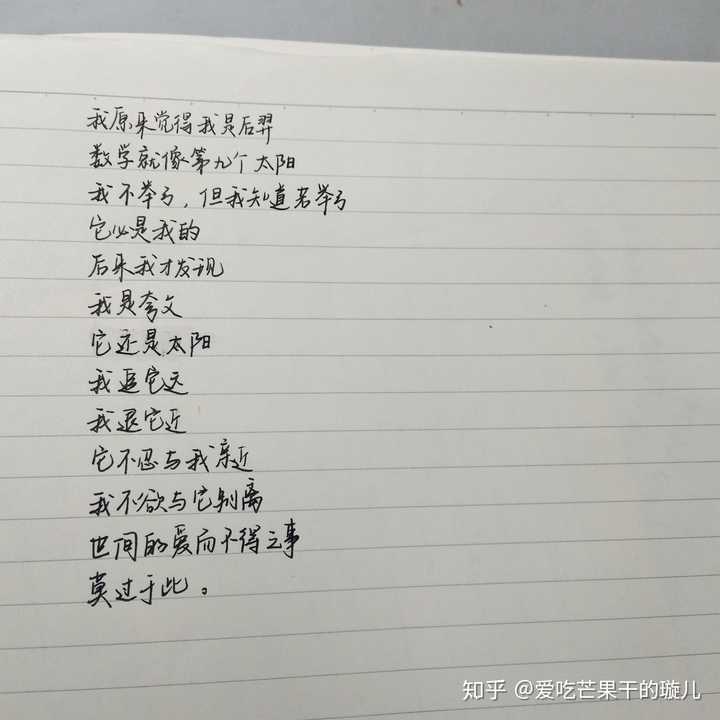 我原来觉得我是后羿
数学就像第九个太阳
我不举弓，但我知道若举弓
它必是我的
后来我才发现
我是夸父
它还是太阳
我追它远
我退它近
它不忍与我亲近
我不欲与它别离
世间的爱而不得之事
莫过于此。
知乎 @爱吃芒果干的璇儿